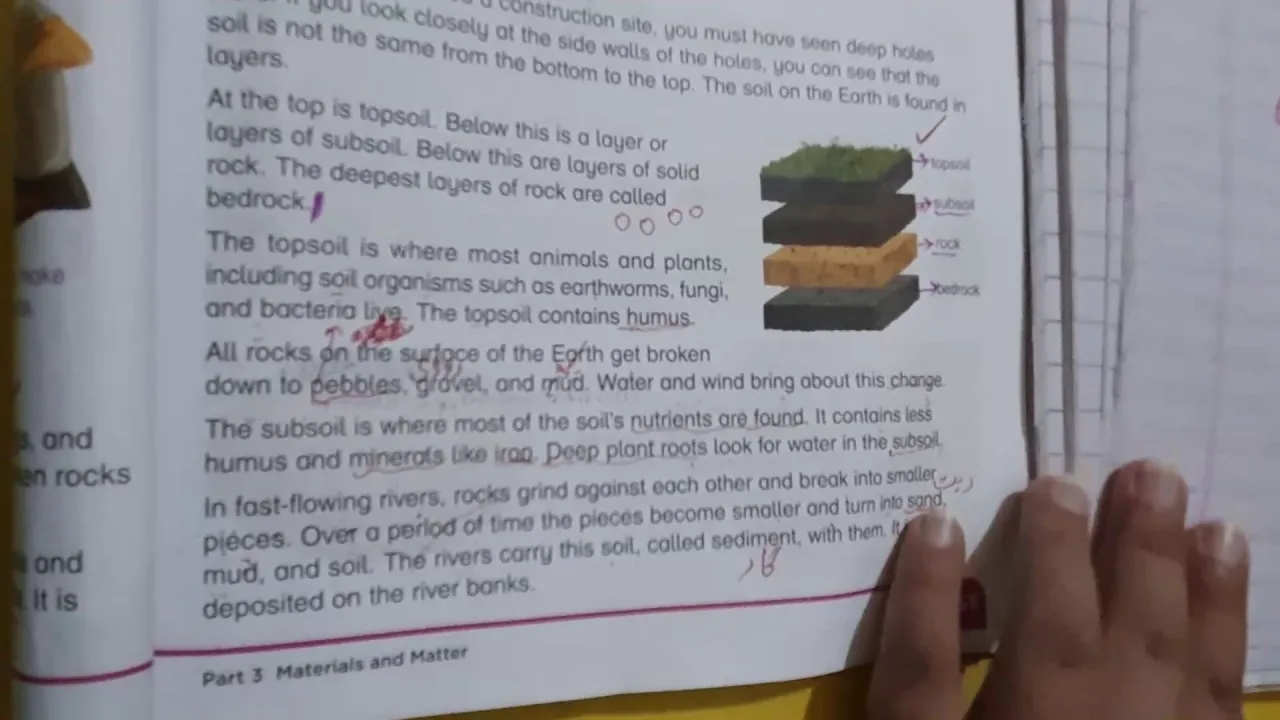 construction site, you must have seen deep holes
you look closely at the side walls of the holes, you can see that the
soil is not the same from the bottom to the top. The soil on the Earth is found in
layers.
At the top is topsoil. Below this is a layer or
layers of subsoil. Below this are layers of solid
rock. The deepest layers of rock are called
bedrock.
topsoil
subsoil
rock
bedrock
The topsoil is where most animals and plants,
including soil organisms such as earthworms, fungi,
and bacteria live. The topsoil contains humus.
All rocks on the surface of the Earth get broken
down to pebbles, gravel, and mud. Water and wind bring about this change.
The subsoil is where most of the soil's nutrients are found. It contains less
humus and minerals like iron. Deep plant roots look for water in the subsoil.
In fast-flowing rivers, rocks grind against each other and break into smaller
ریت
pieces. Over a period of time the pieces become smaller and turn into sand,
mud, and soil. The rivers carry this soil, called sediment, with them. It
deposited on the river banks.
Part 3 Materials and Matter
s, and
en rocks
and
It is